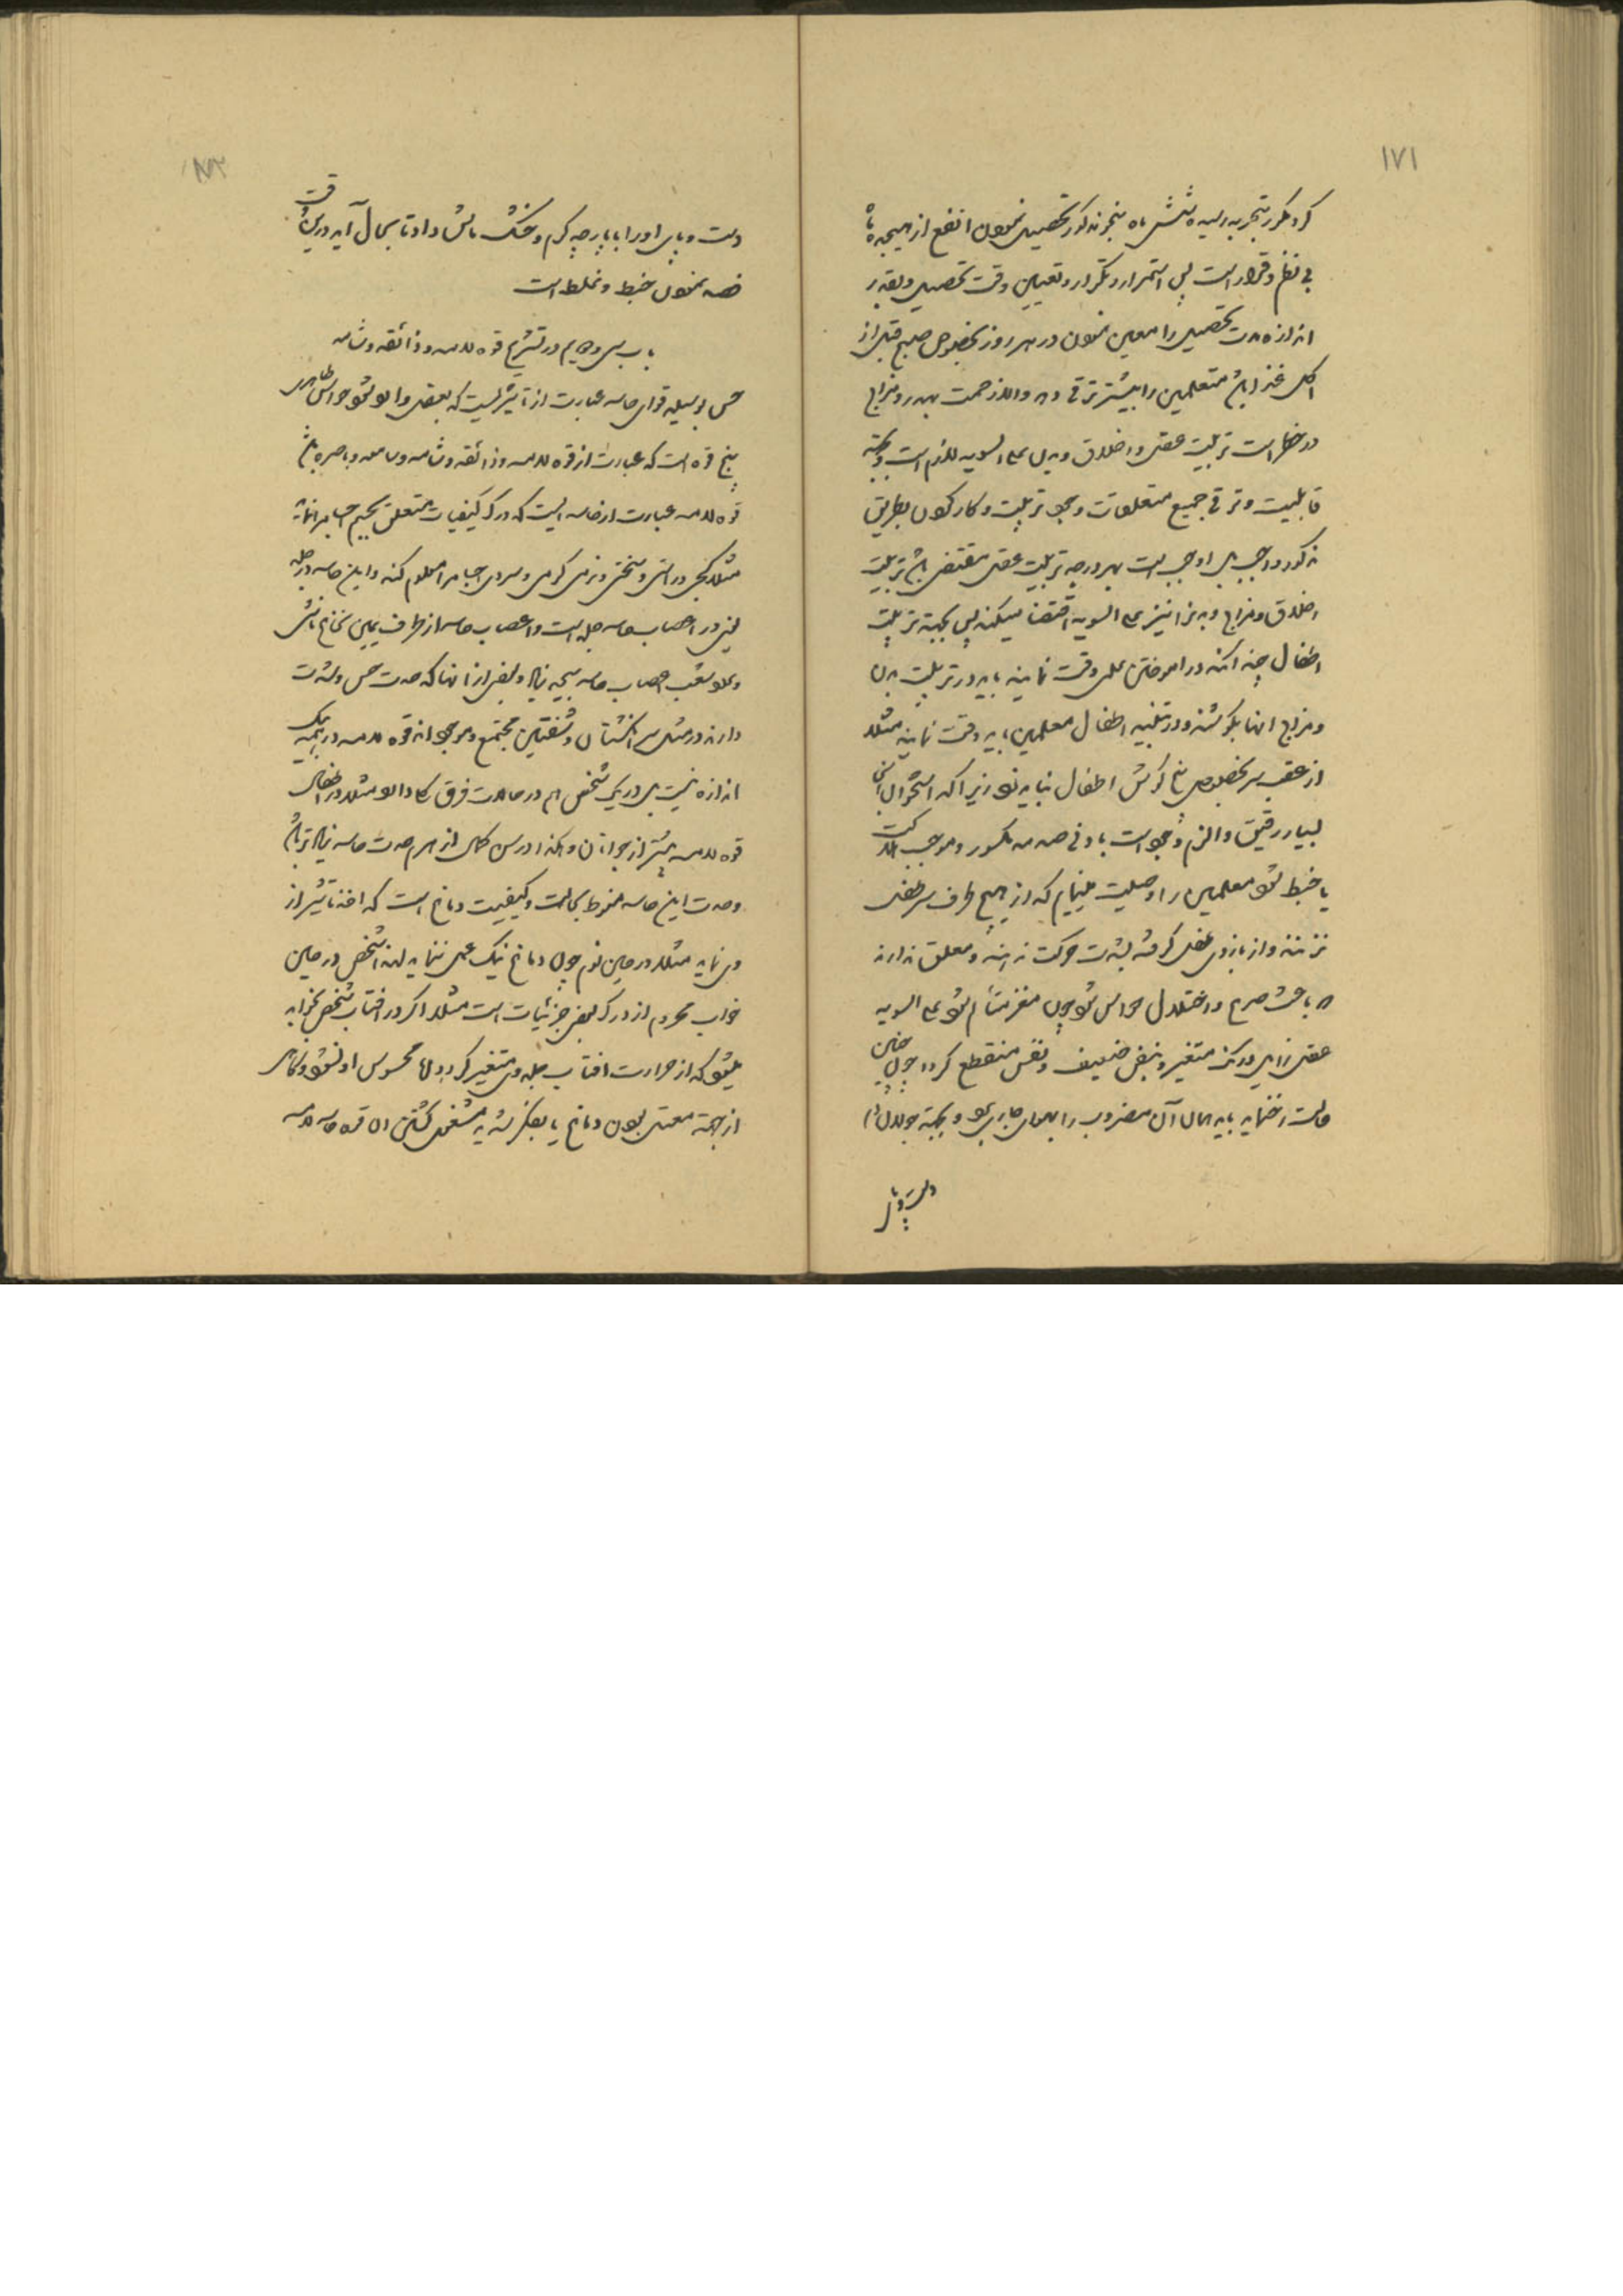 ۱۷۱
کرد مکرر بتجربه رسیده شش ماه بنحو مذکور تحصیل نمودن انفع از هیجده ماه
بی نظم و قرار است پس استمرار و تکرار و تعیین وقت تحصیل و بقدر
اندازه مدت تحصیل را معین نمودن در هر روز بخصوص صبح قبل از
اکل غذا باعث متعلمین را بیشتر ترقی دهد والا زحمت بهدر و مزاج
در خطر است تربیت عقل و اخلاق و بدن علی السویه لازم است و بجهة
قابلیت و ترقی جمیع متعلقات وجود تربیت و کار کردن بطریق
مذکور واجب بل اوجب است بهر درجه تربیت عقل مقتضی باشد تربیت
اخلاق و مزاج و بدن را نیز علی السویه اقتضا میکند پس بجهة تربیت
اطفال چندانکه در آموختن علم دقت نمایند باید در تربیت بدن
و مزاج آنها بکوشند و در تنبیه اطفال معلمین باید دقت نمایند مثلا
از عقب سر بخصوص بیخ گوش اطفال نباید زد زیرا که استخوان آنجا
بسیار رقیق و الزم وجود است بادنی صدمه مکسور و موجب هلاکت
یا خبط شود معلمین را وصیت مینمایم که از هیچ طرف سر طفل
نزنند و از بازوی طفل گرفته بشدت حرکت ندهند و معلق ندارند
که باعث صرع و اختلال حواس شود چون مغز متألم شود علی السویه
عقل زایل و رنگ متغیر و نبض ضعیف و نفس منقطع گردد چون چنین
حالت رخ نماید باید در حال آن مضروب را بهوای جاری برد و بجهة جولان دم
دست و پای
۱۷۲
دست و پای او را با پارچه گرم و خشک مالش داد تا بحال آید در این وقت
فصد نمودن خبط و غلط است
باب سی و چهارم در تشریح قوه لامسه و ذائقه و شامه
حس بوسیله قوای حاسه عبارت از تاثیریست که بعقل وارد شود حواس ظاهری
پنج قوه است که عبارت از قوه لامسه و ذائقه و شامه و سامعه و باصره باشد
قوه لامسه عبارت از حاسه ایست که درک کیفیات متعلق بجسم اجسام را نماید
مثلا کجی و راستی و سختی و نرمی گرمی و سردی اجسام را معلوم کند و این حاسه در جلد
یعنی در اعصاب حاسه جلد است و اعصاب حاسه از طرف یمین نخاع ناشی
و بلا تعب اعصاب حاسه بیحد زیاد و بعضی از آنها که حدت حس و شدت
دارند در مثل سر انگشتان و شفتین مجتمع و موجودند قوه لامسه در همه بیک
اندازه نیست بل در یک شخص هم در حالات فرق بکار دارد مثلا در اطفال
قوه لامسه بیشتر از جوانان و هکذا در سن کمال از هرم حدت حاسه زیادتر باشد
و حدت این حاسه منوط بحالت و کیفیت دماغ است که اخذ تاثیر از
وی نماید مثلا در حین نوم چون دماغ نیک عمل ننماید لهذا شخص در حین
خواب محروم از درک بعض جزئیات است مثلا اگر در آفتاب شخص بخوابد
میشود که از حرارت آفتاب جلد وی متغیر گردد اما محسوس او نشود و گاهی
از جهة معتل بودن دماغ یا بفکر شدید مشغول گشتن آن قوه حاسه لامسه